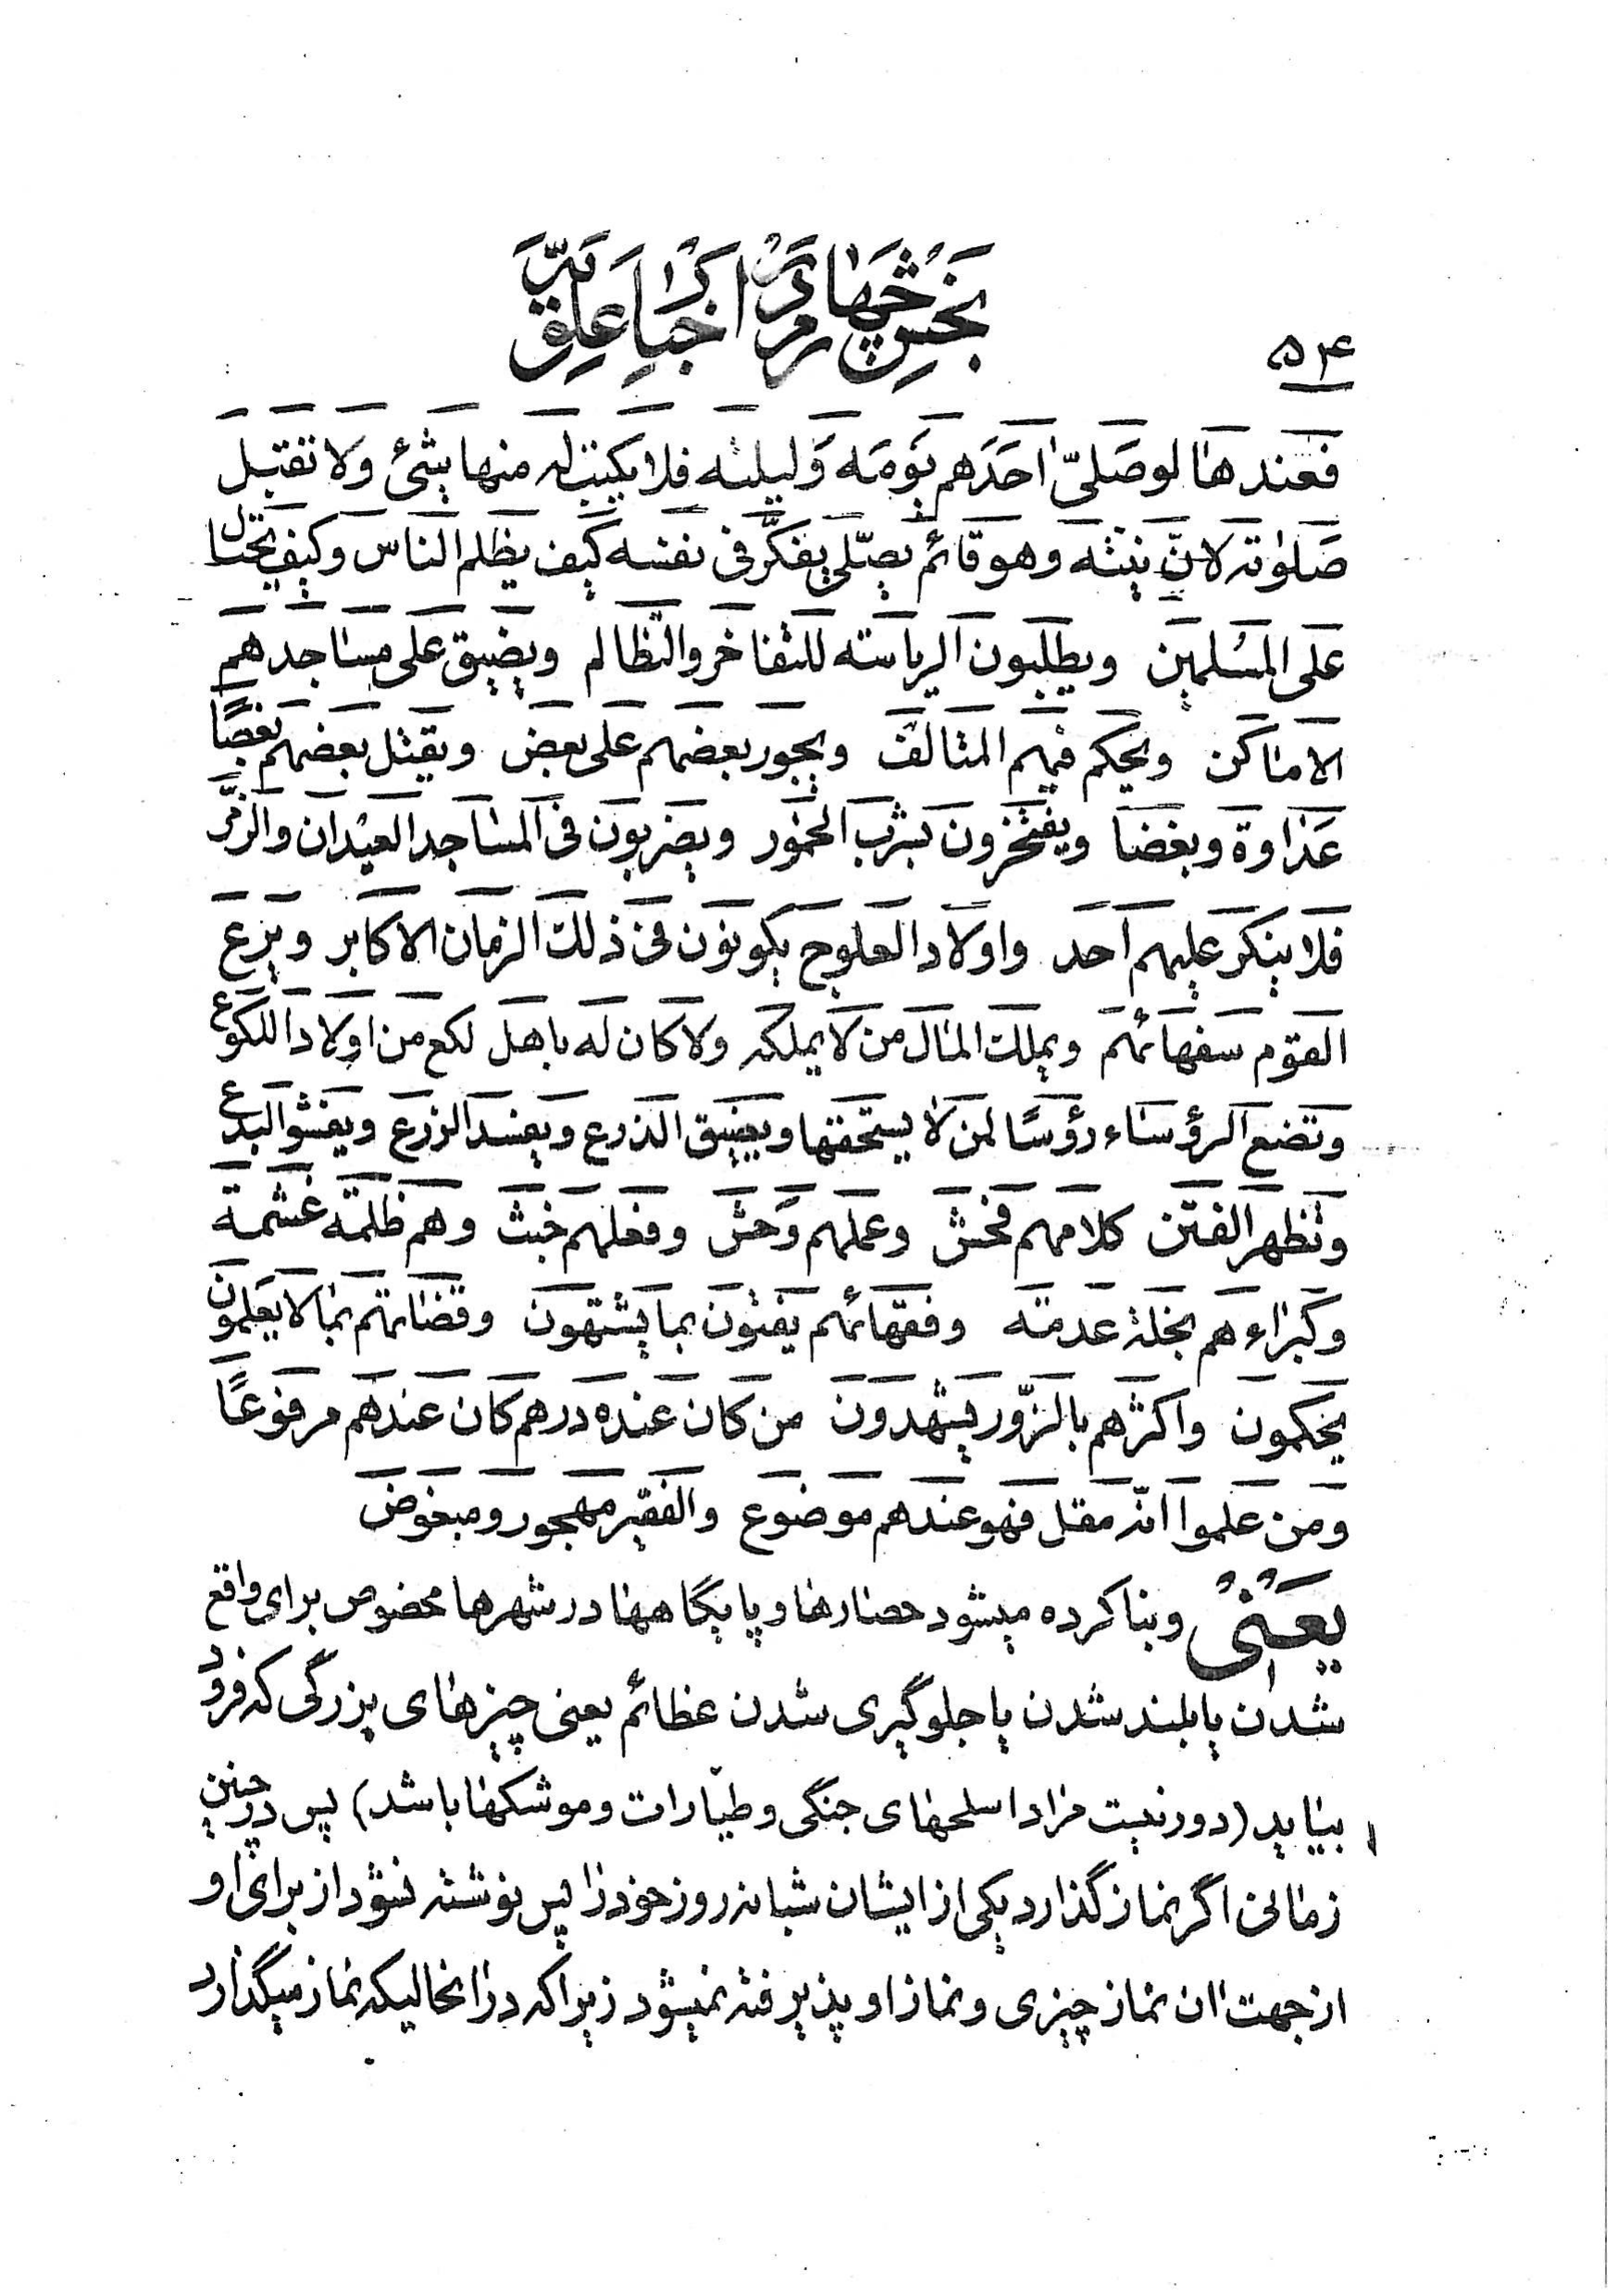 بخش چهارم در اخبار علویه
۵۳۴
فعندها لو صلّی احدهم یومه ولیلته فلا یکتب له منها بشئ ولا تقتبل
صلوته لانّ نیته وهو قائم یصلّی یفکّر فی نفسه کیف یظلم الناس وکیف یختال
علی المسلمین ویطلبون الریاسته للتفاخر والتظالم ویضیق علی مساجدهم
الاماکن ویحکم فیهم المتالف ویجور بعضهم علی بعض ویقتل بعضهم بعضًا
عداوة وبغضا ویفتخرون بشرب الخمور ویضربون فی المساجد العیدان والزمر
فلا ینکر علیهم احد واولاد العلوج یکونون فی ذلک الزمان الاکابر ویرع
القوم سفهائهم ویملک المال من لا یملکه ولا کان له باهل لکع من اولاد اللکوع
وتضع الرؤساء رؤسًا لمن لا یستحقها ویضیق الذرع ویفسد الزرع ویفشو البدع
وتظهر الفتن کلامهم فحش وعملهم وحش وفعلهم خبث وهم ظلمة غشمة
وکبراءهم بخلة عدمة وفقهائهم یفتون بما یشتهون وقضاتهم بما لا یعلمون
یحکمون واکثرهم بالزّور یشهدون من کان عنده درهم کان عندهم مرفوعًا
ومن علموا انّه مقل فهو عندهم موضوع والفقیر مهجور ومبغوض
یعنی وبنا کرده میشود حصارها و پایگاهها در شهرها مخصوص برای واقع
شدن یا بلند شدن یا جلوگیری شدن عظائم یعنی چیزهای بزرگی که فرود
بیاید (دور نیست مراد اسلحهای جنگی و طیّارات و موشکها باشد) پس در چنین
زمانی اگر نماز گذارد یکی از ایشان شبانه روز خود را پس نوشته نشود از برای او
از جهت ان نماز چیزی و نماز او پذیرفته نمیشود زیرا که در انحالیکه نماز میگذارد